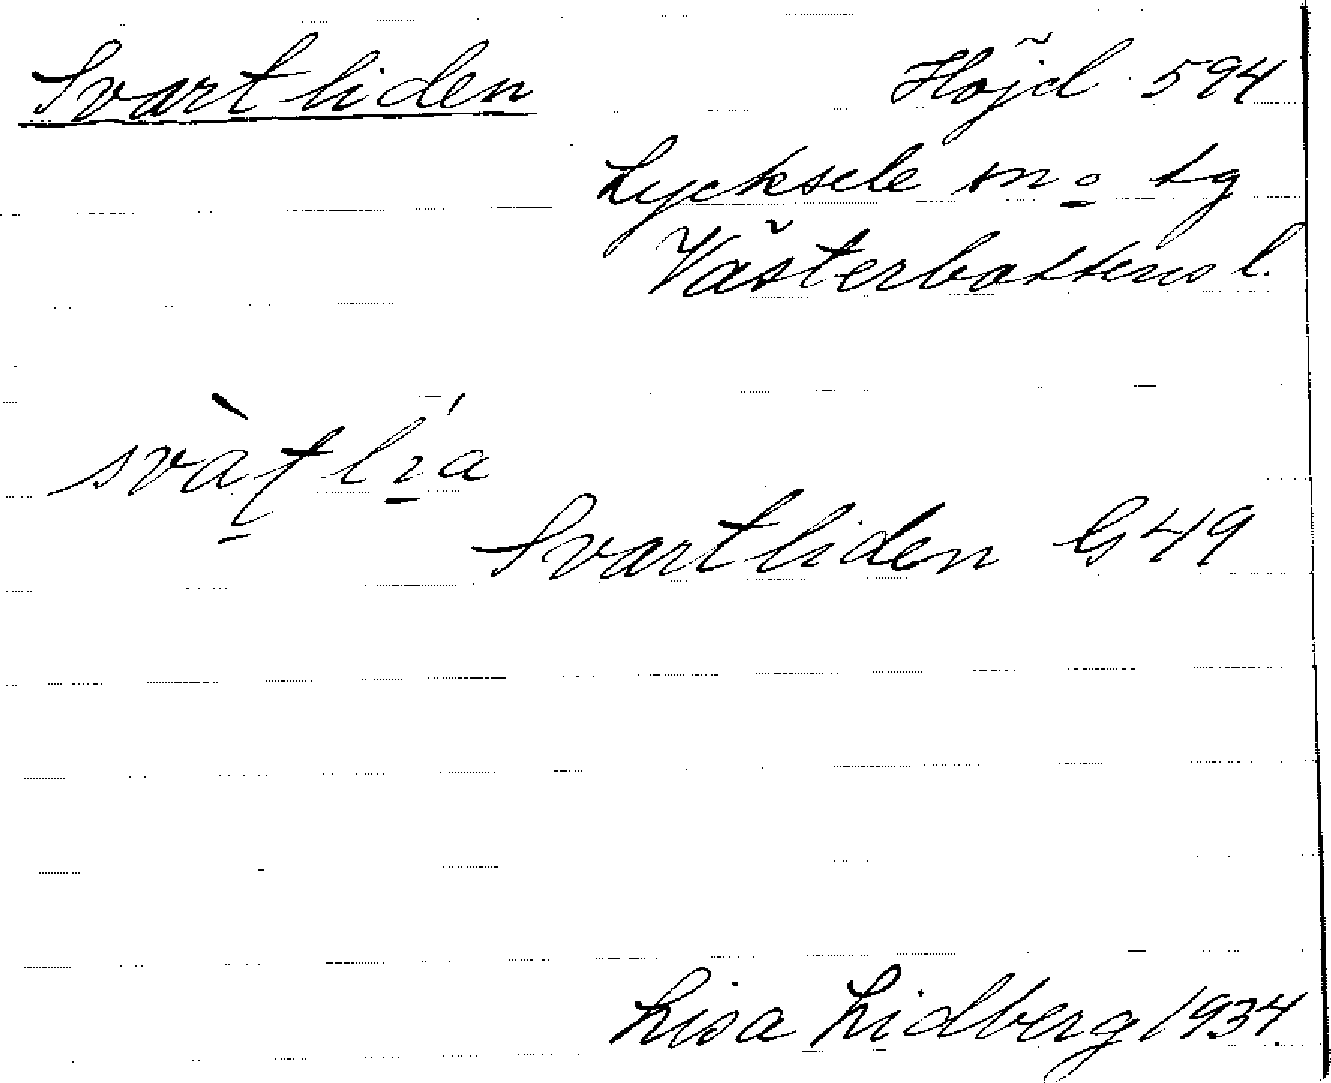 Svartliden Höjd 594
Lycksele sn o tg
Västerbottens l.
svàʈlı́a
Svartliden G49
Lisa Lidberg 1934.